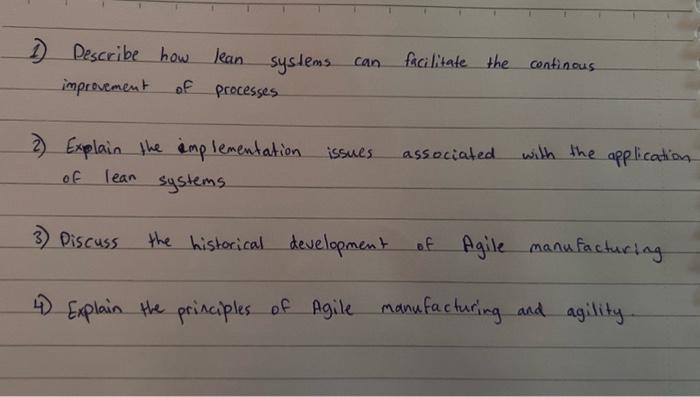 1) Describe how lean systems can facilitate the continous
improvement of processes
2) Explain the implementation issues associated with the application
of lean systems
3) Discuss the historical development of Agile manufacturing
4) Explain the principles of Agile manufacturing and agility.